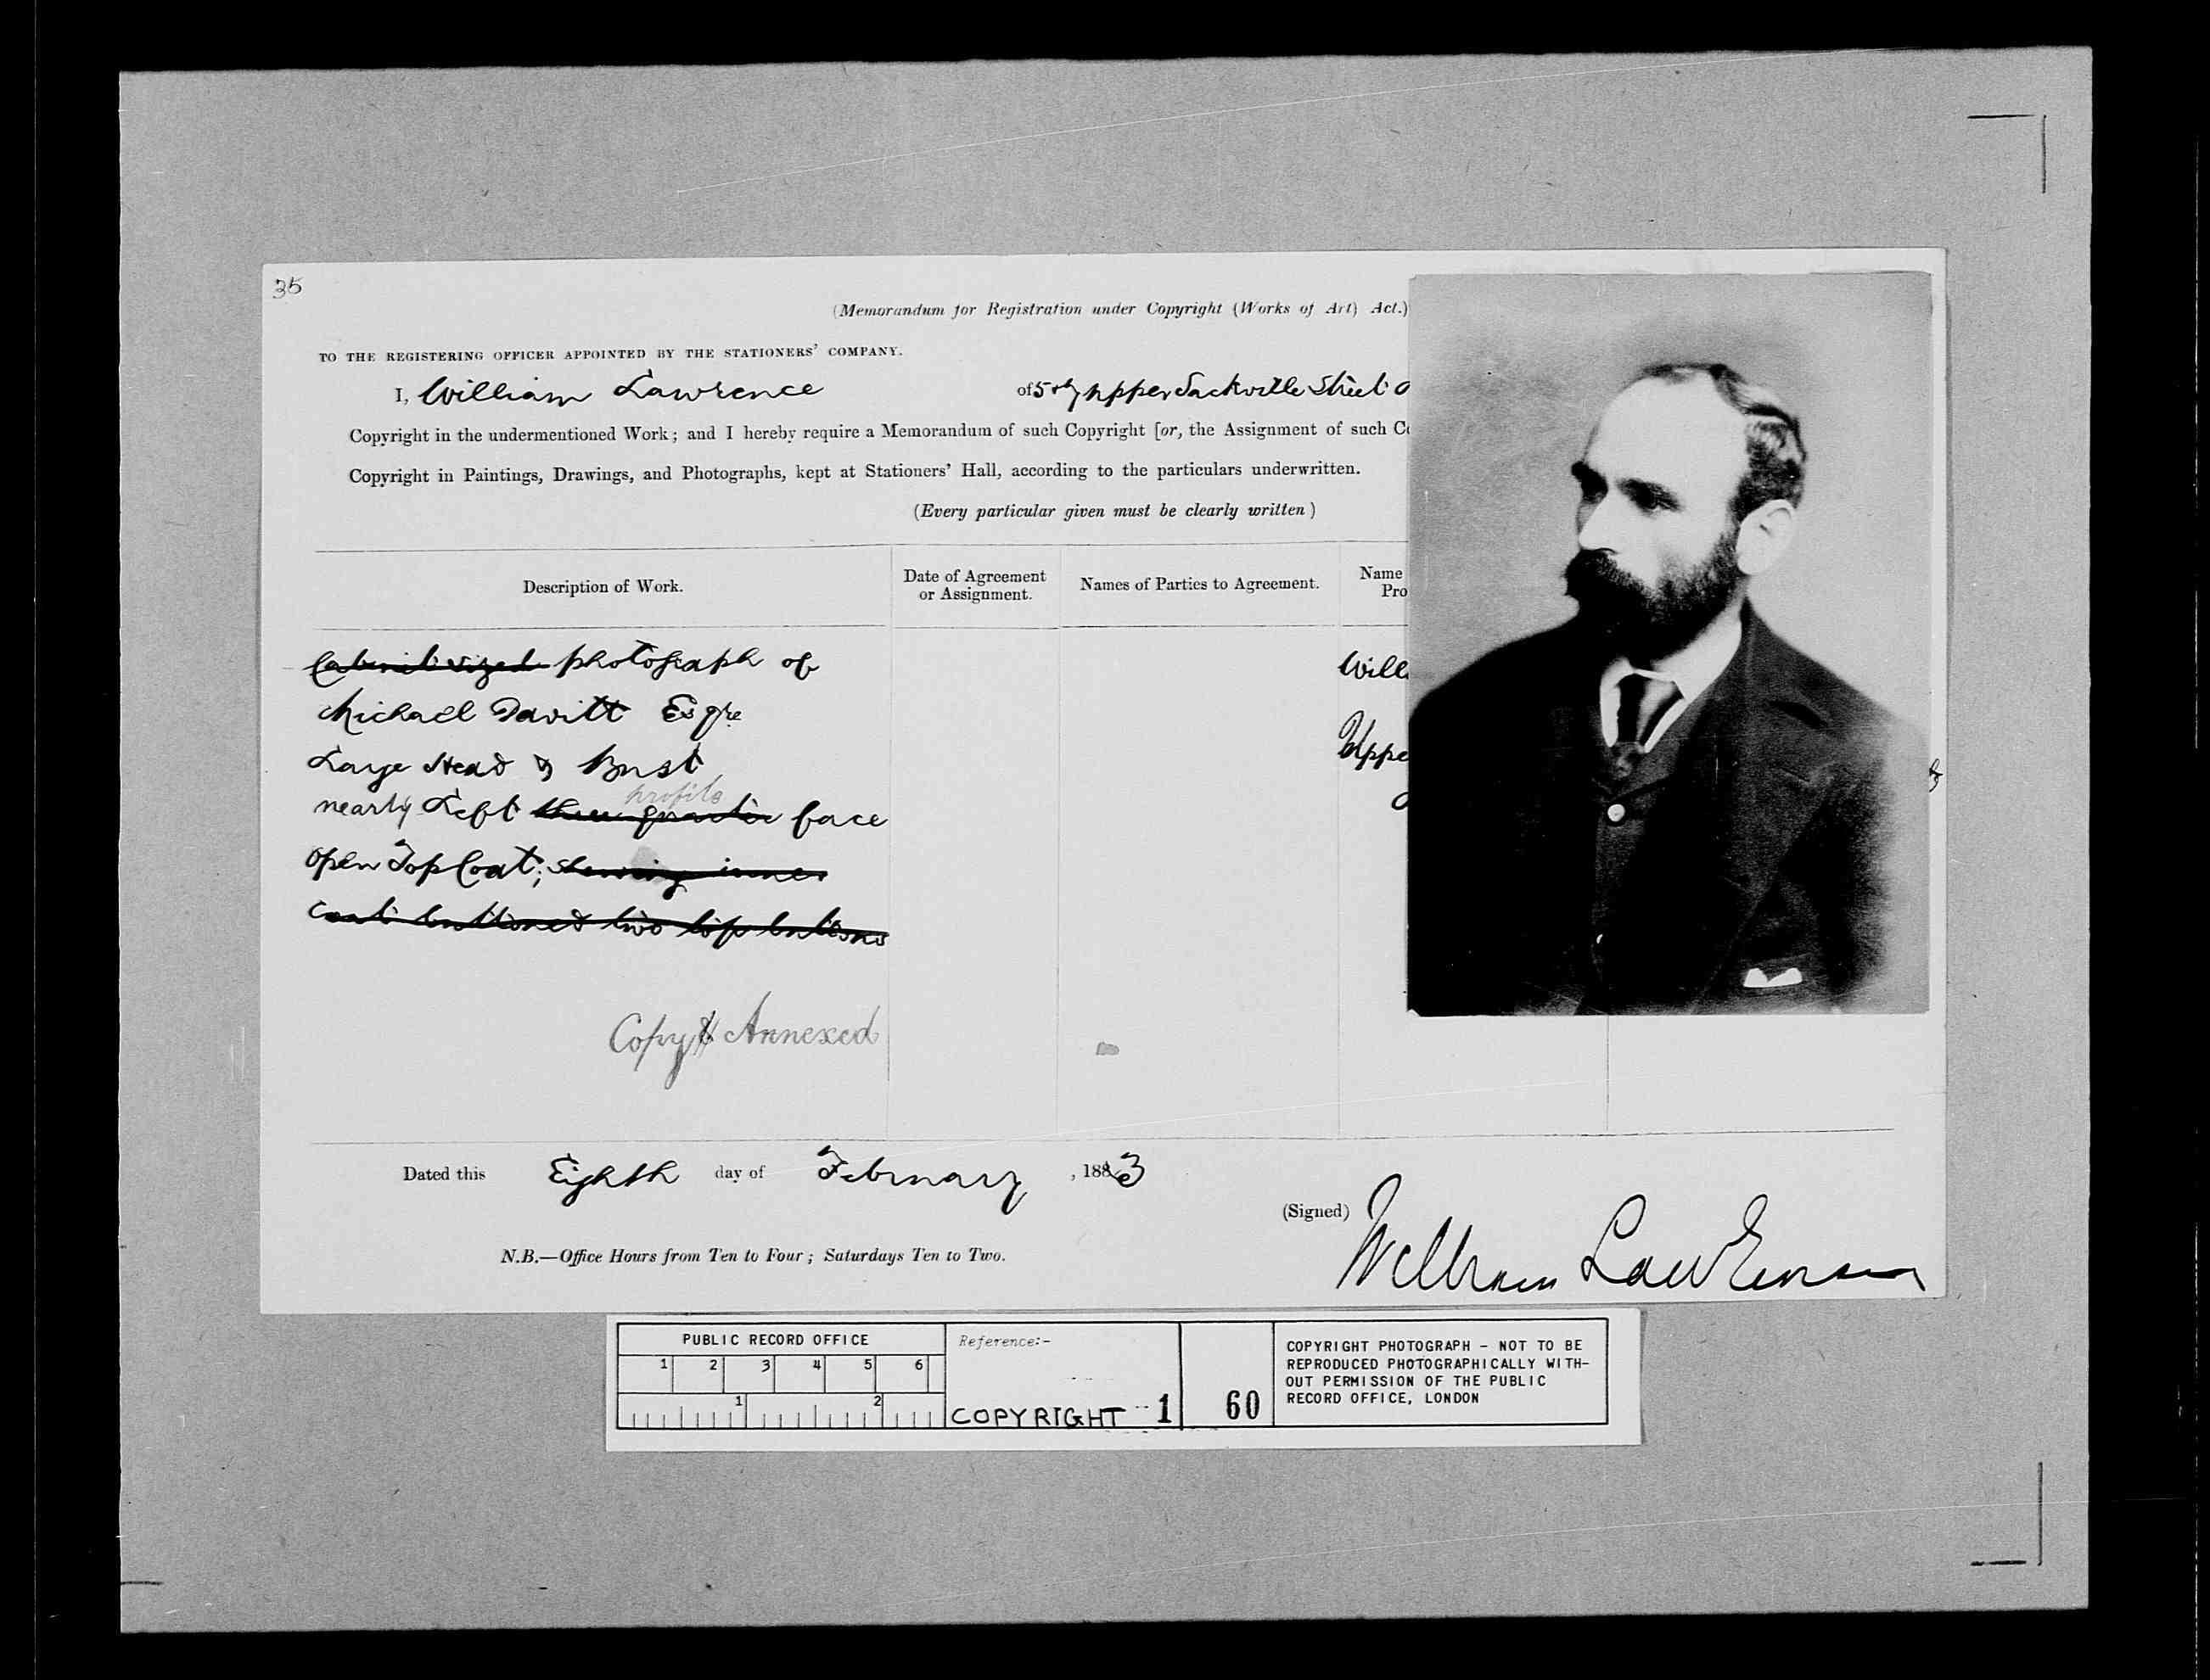 35
(Memorandum for Registration under Copyright (Works of Art) Act.)
TO THE REGISTERING OFFICER APPOINTED BY THE STATIONERS' COMPANY.
I, William Lawrence of 5 & 7 Upper Sackville Street
Copyright in the undermentioned Work; and I hereby require a Memorandum of such Copyright [or, the Assignment of such
Copyright in Paintings, Drawings, and Photographs, kept at Stationers' Hall, according to the particulars underwritten.
(Every particular given must be clearly written)
Description of Work.
Date of Agreement
or Assignment.
Names of Parties to Agreement.
Name
Pro
Cabinet sized photograph of
Michael Davitt Esqre
Large Head & Bust
profile
nearly Left three quarter face
Open Top Coat, shewing inner
Coat buttoned two top buttons
Will
Uppe
Copy Annexed
Dated this Eighth day of February, 1883
(Signed) William Lawrence
N.B.—Office Hours from Ten to Four; Saturdays Ten to Two.
PUBLIC RECORD OFFICE
1 2 3 4 5 6
1 2
Reference:-
COPYRIGHT 1
60
COPYRIGHT PHOTOGRAPH - NOT TO BE
REPRODUCED PHOTOGRAPHICALLY WITH-
OUT PERMISSION OF THE PUBLIC
RECORD OFFICE, LONDON